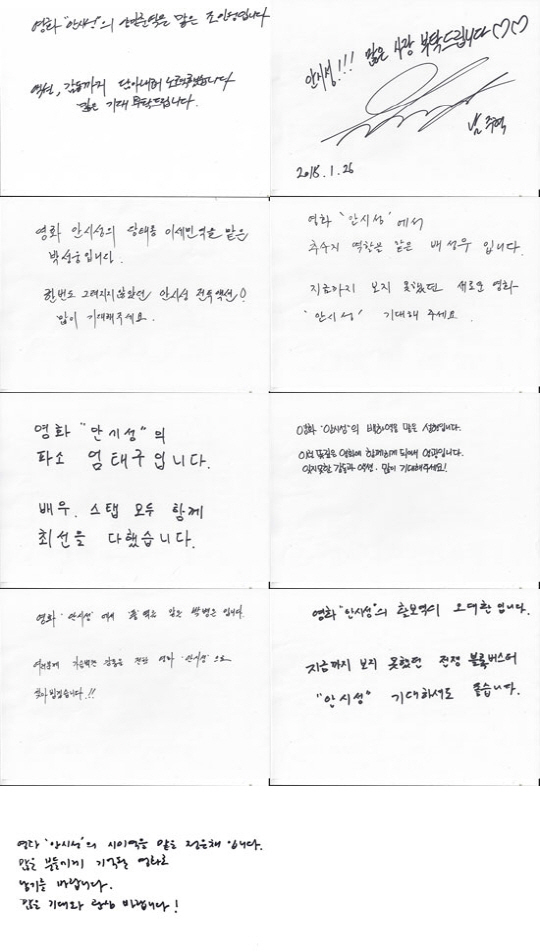 영화 "안시성"의 양만춘역을 맡은 조인성입니다
액션, 감동까지 담아내려 노력했습니다
많은 기대 부탁드립니다.
안시성!!! 많은 사랑 부탁드립니다♡♡
남주혁
2018.1.26
영화 안시성의 당태종 이세민역을 맡은
박성웅입니다.
한번도 그려지지않았던 안시성 전투액션
많이 기대해주세요.
영화 '안시성'에서
추수지 역할을 맡은 배성우 입니다.
지금까지 보지 못했던 새로운 영화
'안시성' 기대해 주세요.
영화 "안시성"의
파소 엄태구입니다.
배우, 스탭 모두 함께
최선을 다했습니다.
영화 '안시성'의 백하역을 맡은 설현입니다.
이런 뜻깊은 영화에 함께하게 되어서 영광입니다.
잊지못할 감동과 액션. 많이 기대해주세요!
영화 '안시성' 에서 풍 역을 맡은 박병은 입니다.
여러분께 가슴벅찬 감동을 전할 영화 '안시성'으로
찾아뵙겠습니다.!!
영화 "안시성"의 활보역의 오대환 입니다.
지금까지 보지 못했던 전쟁 블록버스터
"안시성" 기대하셔도 좋습니다.
영화 '안시성'의 시미역을 맡은 정은채 입니다.
많은 분들에게 기억될 영화로
남기를 바랍니다.
많은 기대와 관심 바랍니다!